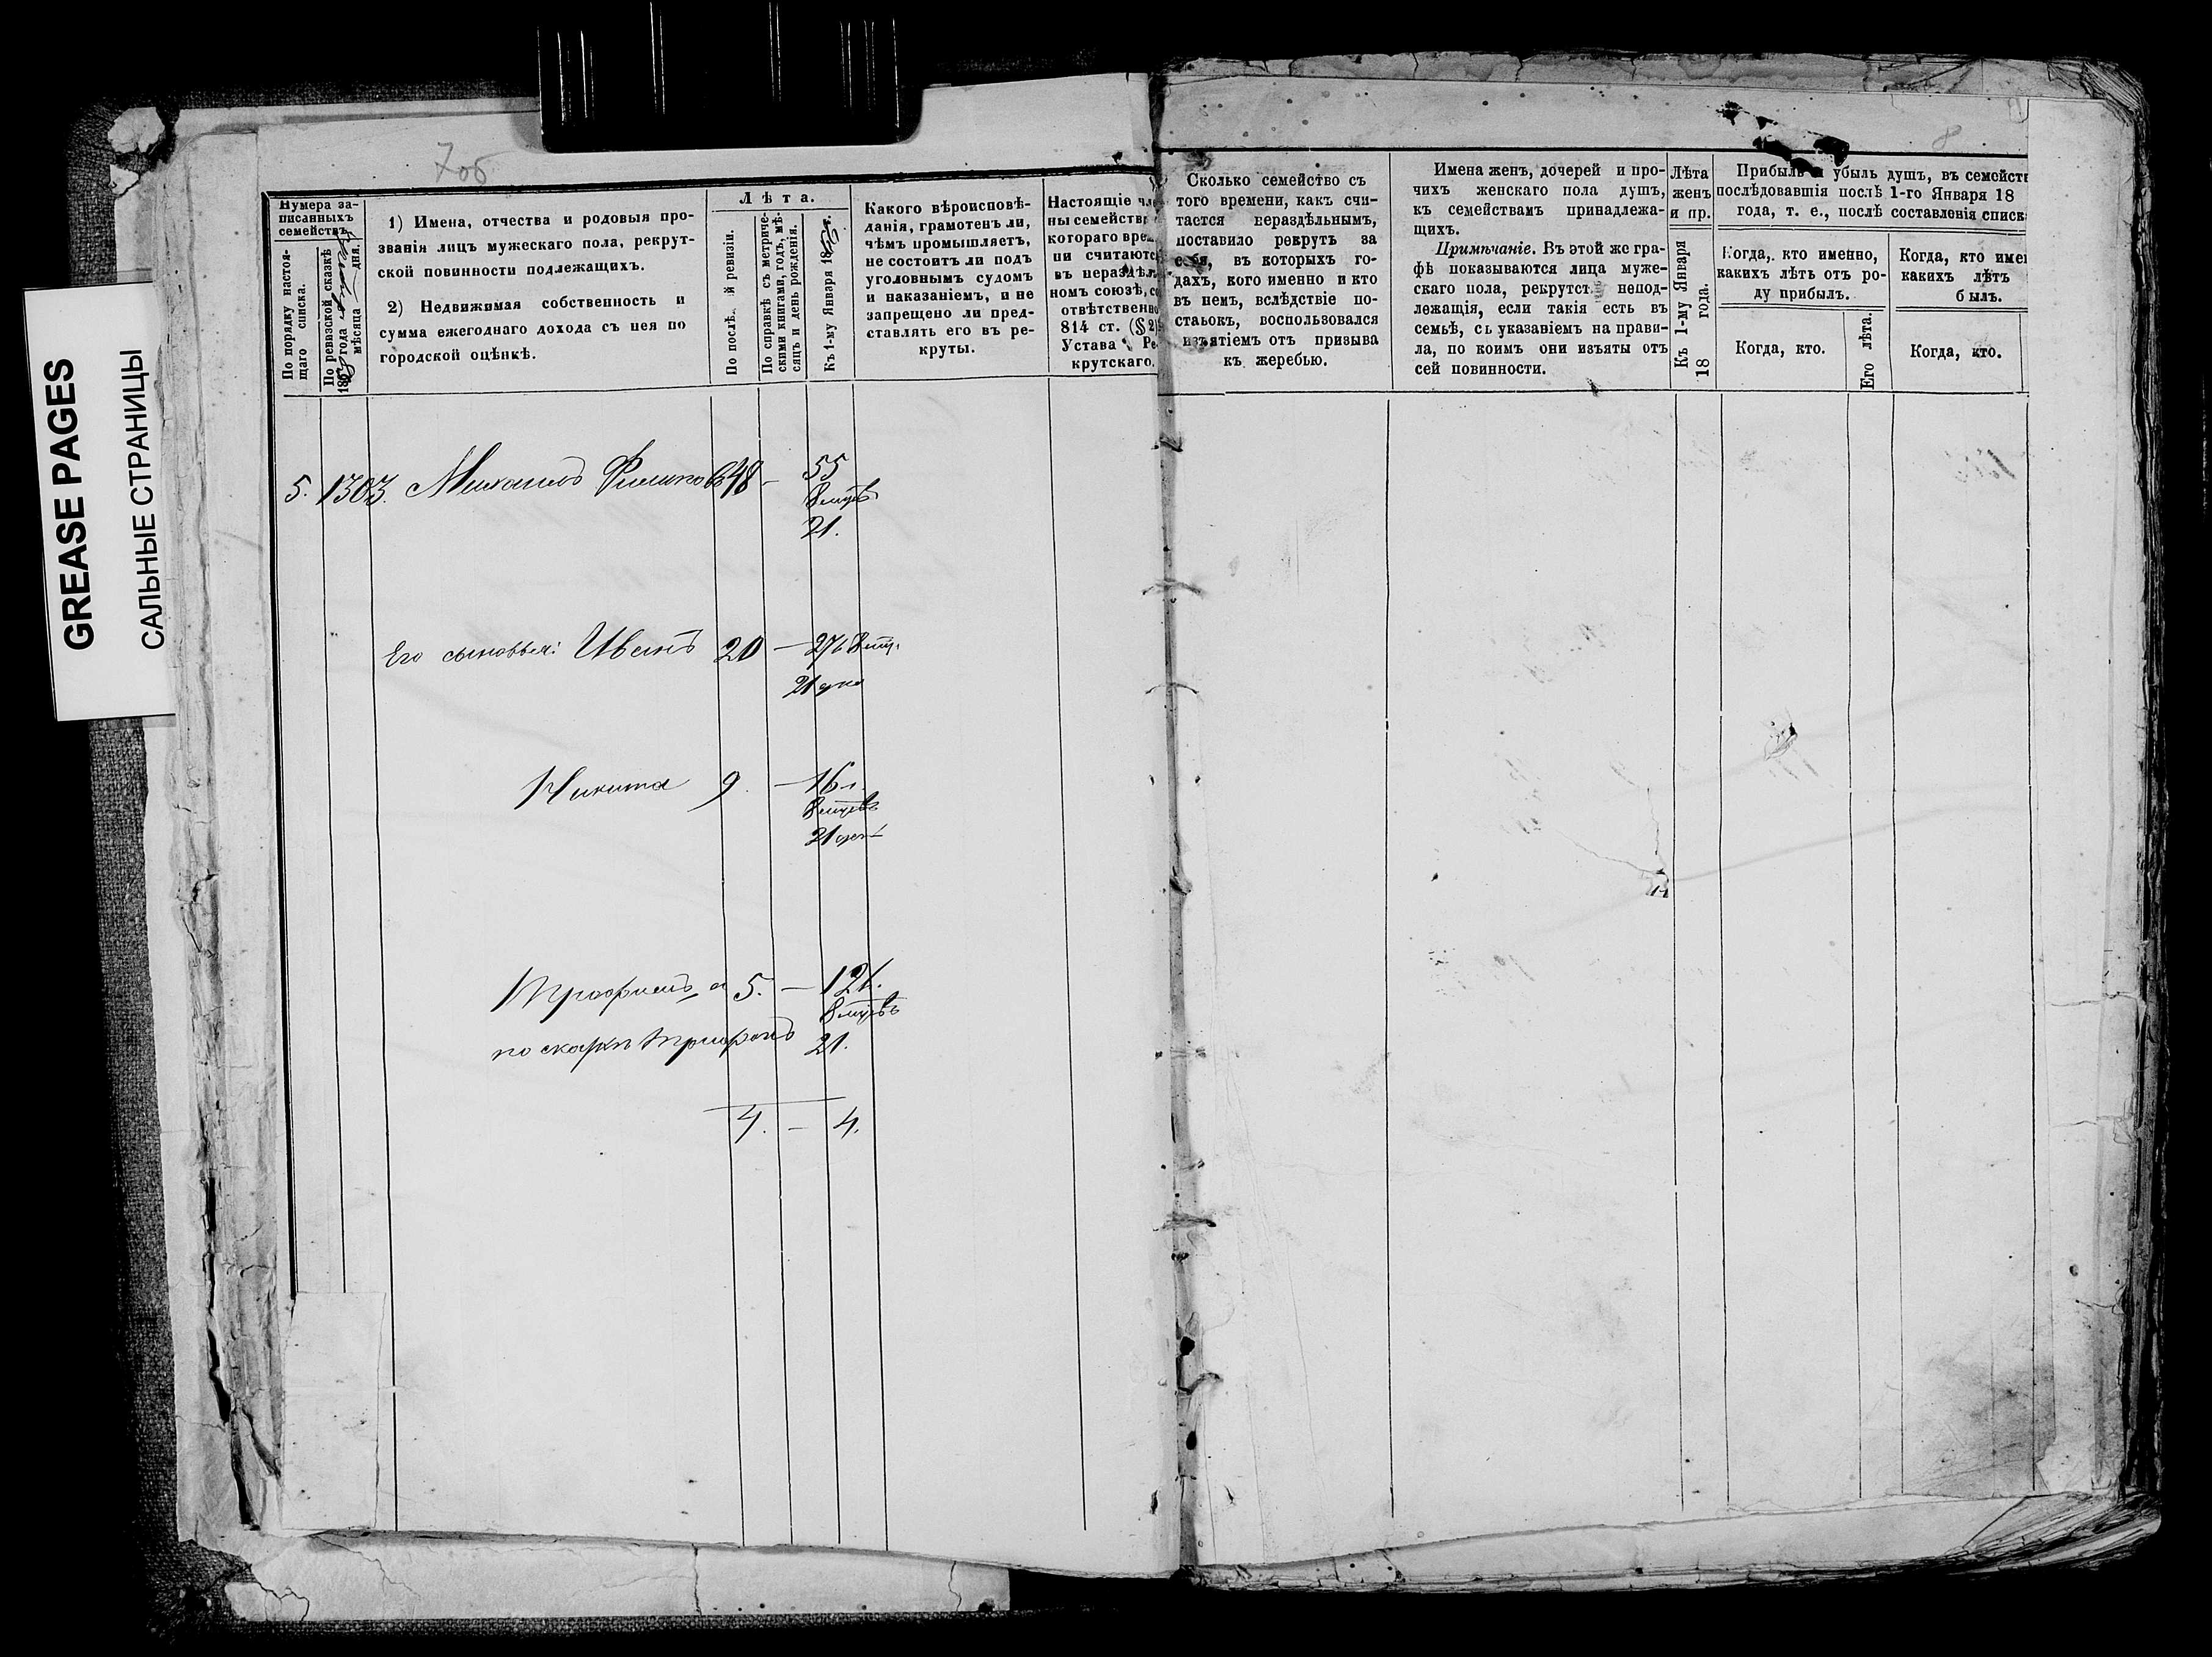 GREASE PAGES
САЛЬНЫЕ СТРАНИЦЫ
7об
8
Нумера за-
писанныхъ
семействъ.
По порядку настоя-
щаго списка.
По ревизской сказкѣ
185 года
мѣсяца дня.
1) Имена, отчества и родовыя про-
званія лицъ мужескаго пола, рекрут-
ской повинности подлежащихъ.
2) Недвижимая собственность и
сумма ежегоднаго дохода съ нея по
городской оцѣнкѣ.
Лѣта.
По послѣ. й ревизіи.
По справкѣ съ метриче-
скими книгами, годъ, мѣ-
сяцъ и день рожденія.
Къ 1-му Января 18 г.
Какого вѣроисповѣ-
данія, грамотенъ ли,
чѣмъ промышляетъ,
не состоитъ ли подъ
уголовнымъ судомъ
и наказаніемъ, и не
запрещено ли пред-
ставлять его въ ре-
круты.
Настоящіе чле
ны семейства
котораго вре
ни считаются
въ нераздѣл
номъ союзѣ, со
отвѣтственно
814 ст. (§ 2
Устава Ре
крутскаго.
Сколько семейство съ
того времени, какъ счи-
тается нераздѣльнымъ,
поставило рекрутъ за
себя, въ которыхъ го-
дахъ, кого именно и кто
въ немъ, вслѣдствіе по-
ставокъ, воспользовался
изъятіемъ отъ призыва
къ жеребью.
Имена женъ, дочерей и про-
чихъ женскаго пола душъ,
къ семействамъ принадлежа-
щихъ.
Примѣчаніе. Въ этой же гра-
фѣ показываются лица муже-
скаго пола, рекрутст. непод-
лежащія, если такія есть въ
семьѣ, съ указаніемъ на прави-
ла, по коимъ они изъяты отъ
сей повинности.
Лѣта
женъ
и пр.
Къ 1-му Января
18 года.
Прибыль и убыль душъ, въ семейств
послѣдовавшія послѣ 1-го Января 18
года, т. е., послѣ составленія списк
Когда, кто именно,
какихъ лѣтъ отъ ро-
ду прибылъ.
Когда, кто име
какихъ лѣтъ
былъ.
Когда, кто.
Его лѣта.
Когда, кто.
5. 1303. Михаилъ 48 - 55
8 мцвъ
21.
Его сыновья: Иванъ 20 — 27 8 мц.
21 дня
Никита 9. — 16 л.
8 мцевъ
21 дня
Трофимъ, а 5. — 12 л.
8 мцвъ
по сказкѣ Трифонъ 21.
4. — 4.